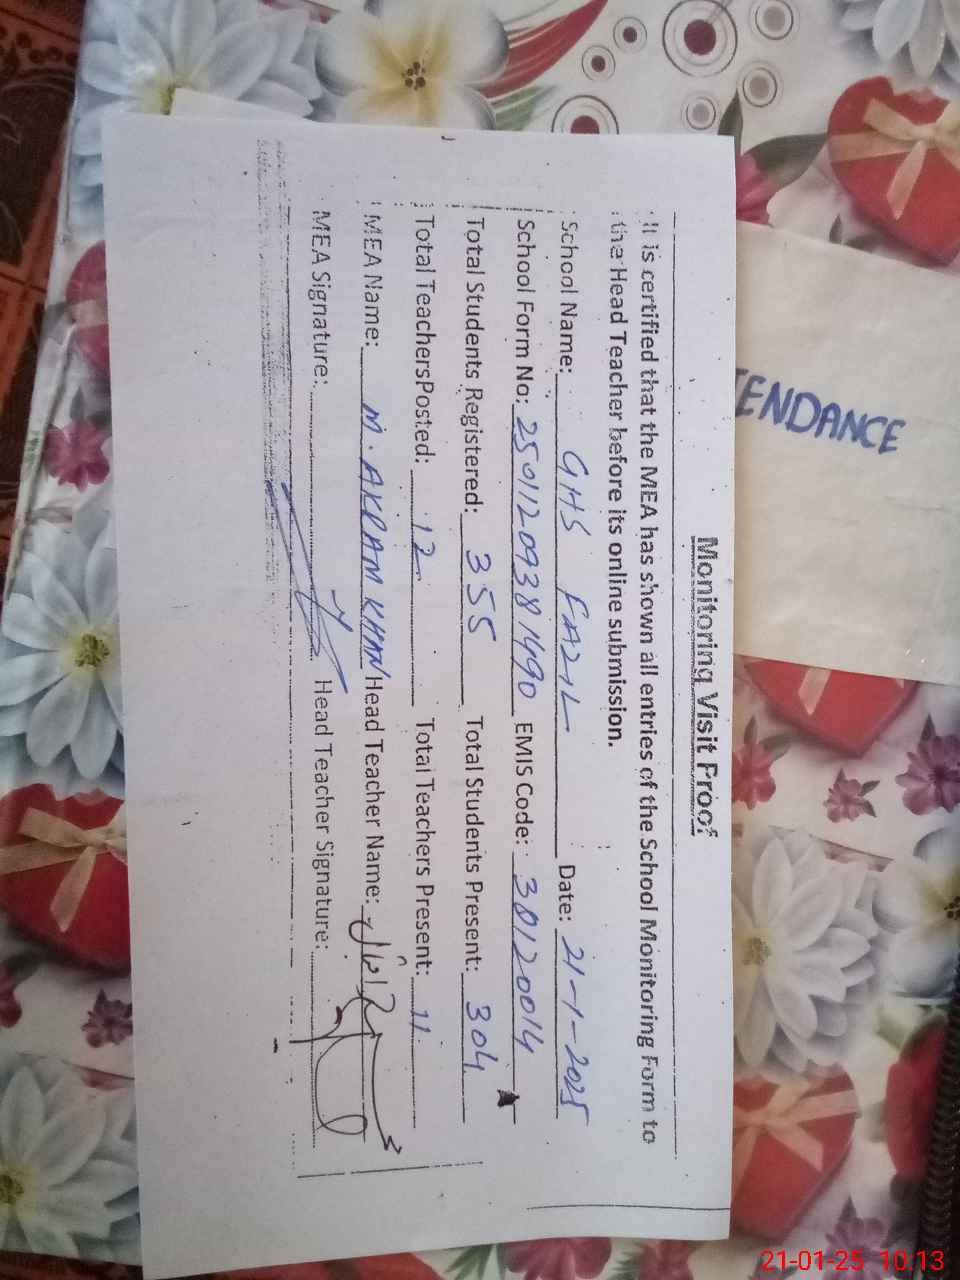 Monitoring Visit Proof
It is certified that the MEA has shown all entries of the School Monitoring Form to
the Head Teacher before its online submission.
School Name: GHS FAZIL Date: 21-1-2025
School Form No: 25011209381490 EMIS Code: 38120014
Total Students Registered: 355 Total Students Present: 304
Total TeachersPosted: 12 Total Teachers Present: 11
MEA Name: M. AKRAM KHAN Head Teacher Name:
MEA Signature: Head Teacher Signature:
TENDANCE
21-01-25 10:13